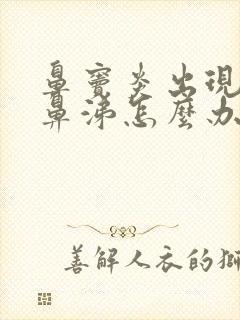 鼻竇炎出現
鼻涕怎麼办
善解人衣的獅